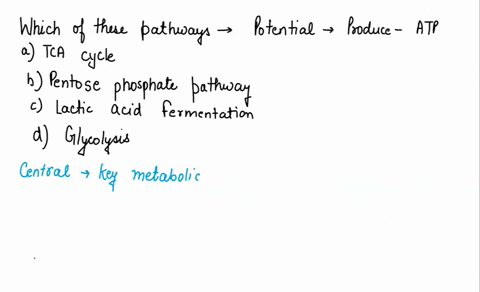 Which of these pathways → Potential → Produce - ATP
a) TCA cycle
b) Pentose phosphate pathway
c) Lactic acid fermentation
d) Glycolysis
Central → key metabolic